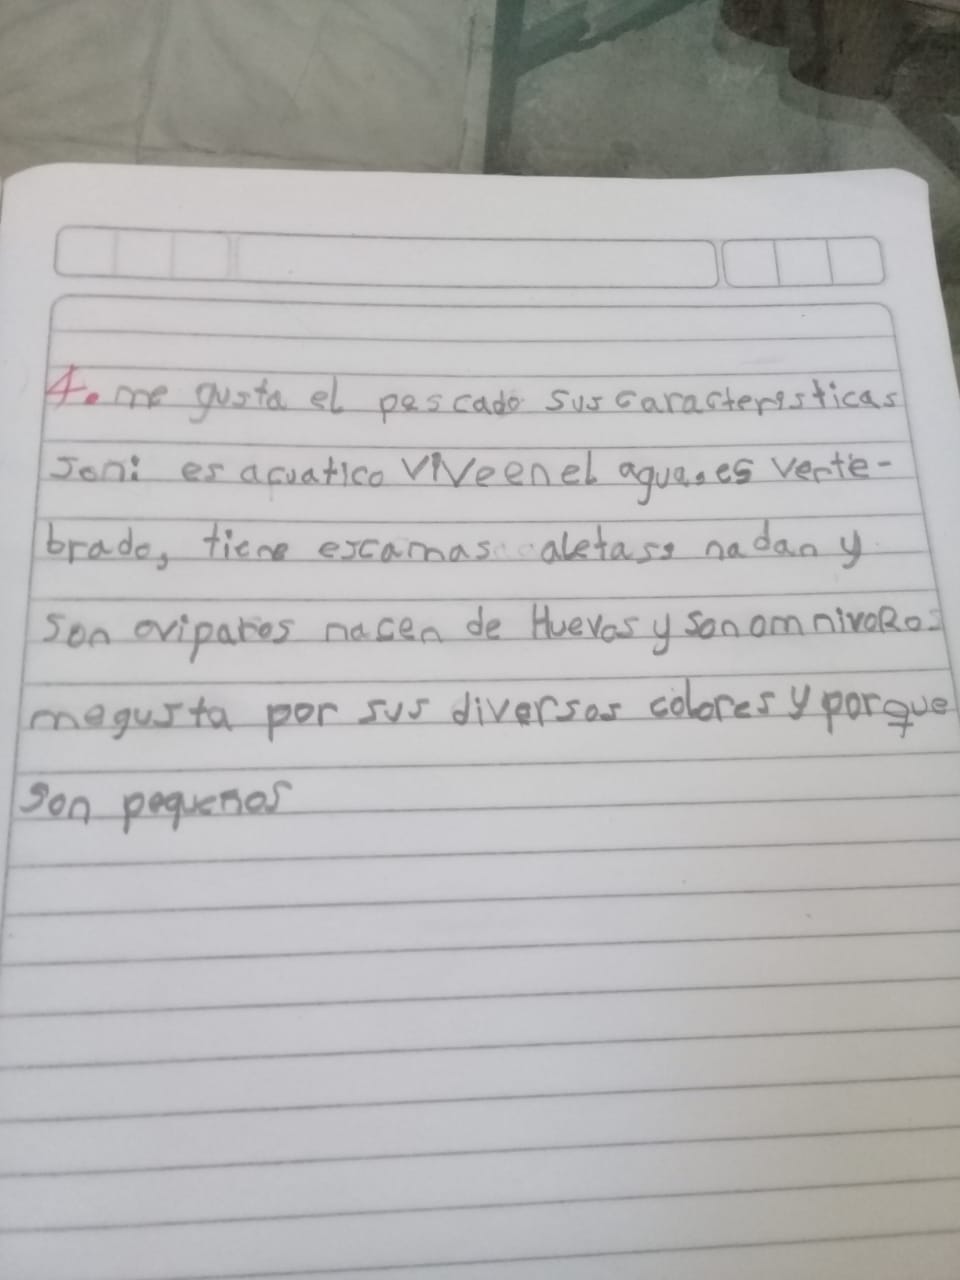 4. me gusta el pescado sus caracteristicas
son: es acuatico vive en el agua, es verte-
brado, tiene escamas aletass, nadan y
son oviparos nacen de Huevos y son omnivoRos
me gusta por sus diversos colores y porque
son pequenos